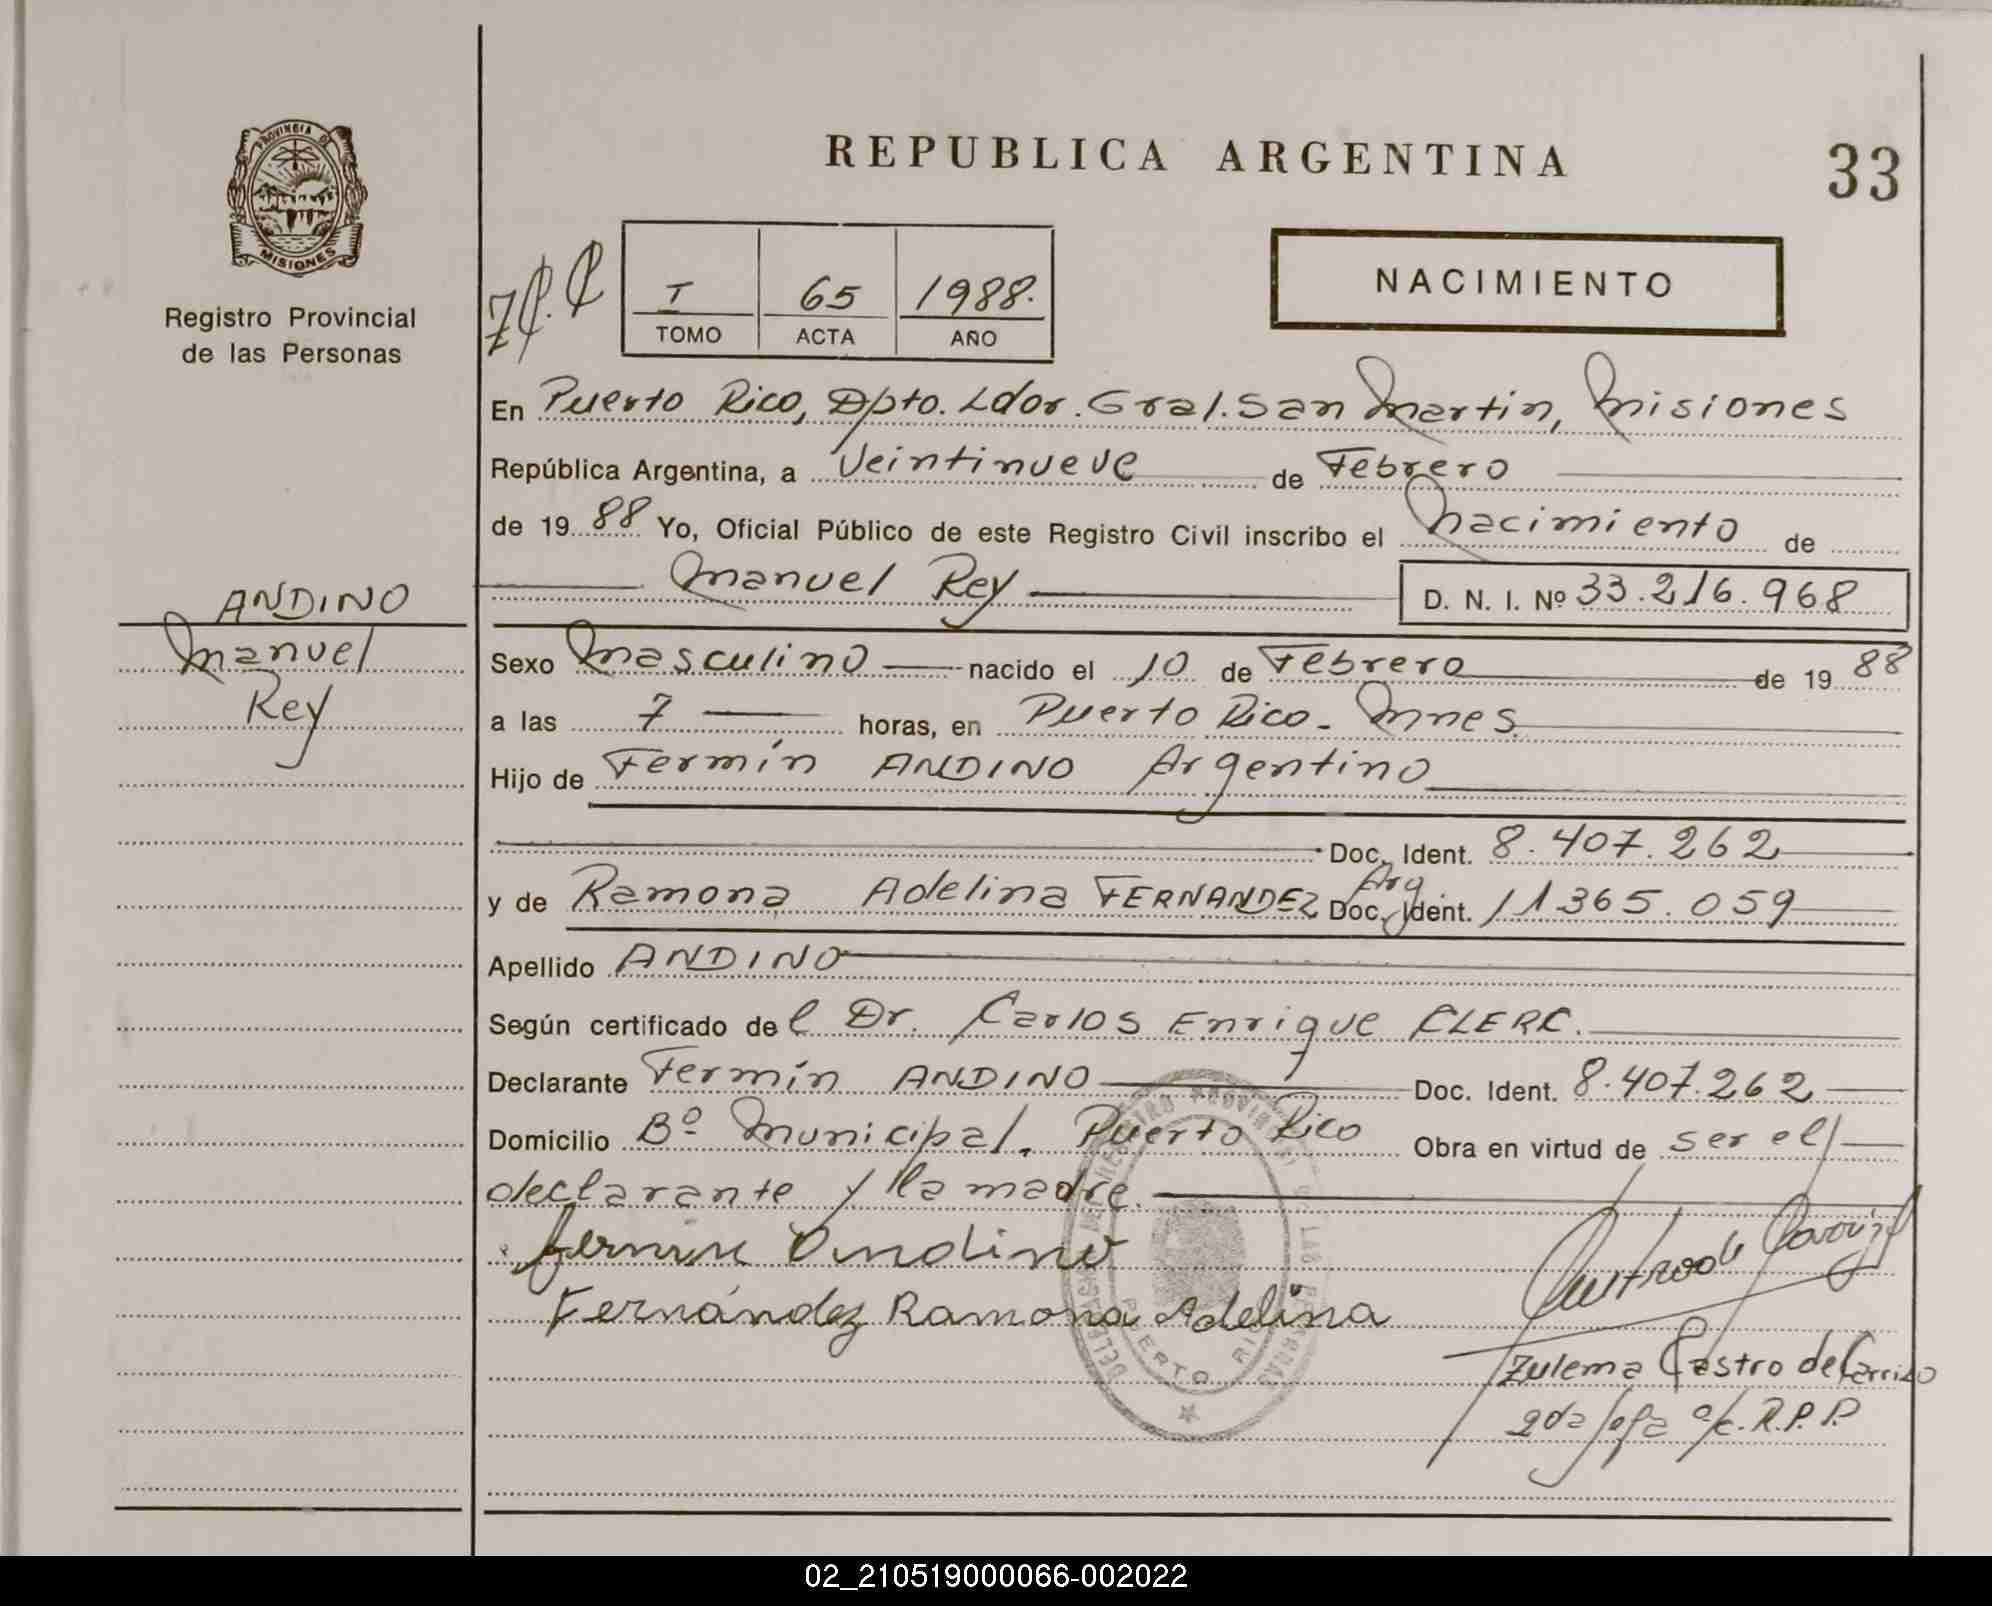 PROVINCIA DE
MISIONES
Registro Provincial
de las Personas
ANDINO
Manuel
Rey
REPUBLICA ARGENTINA
33
I 65 1988.
TOMO ACTA AÑO
NACIMIENTO
En Puerto Rico, Dpto. Ldor. Gral. San Martin, Misiones
República Argentina, a Veintinueve de Febrero
de 19 88 Yo, Oficial Público de este Registro Civil inscribo el Nacimiento de
Manuel Rey D. N. I. Nº 33.216.968
Sexo Masculino nacido el 10 de Febrero de 19 88
a las 7 horas, en Puerto Rico - Mnes.
Hijo de Fermín ANDINO Argentino
Doc. Ident. 8.407.262
y de Ramona Adelina FERNANDEZ Arg. Doc. Ident. 11365.059
Apellido ANDINO
Según certificado del Dr. Carlos Enrique CLERC.
Declarante Fermín ANDINO Doc. Ident. 8.407.262
Domicilio Bº Municipal. Puerto Rico Obra en virtud de ser el
declarante y la madre.
Fermin Andino
Fernández Ramona Adelina
DELEGACION DEL REGISTRO PROVINCIAL DE LAS PERSONAS
PUERTO RICO
Zulema Castro de Carrizo
2da Jefa a/c. R.P.P.
02_210519000066-002022